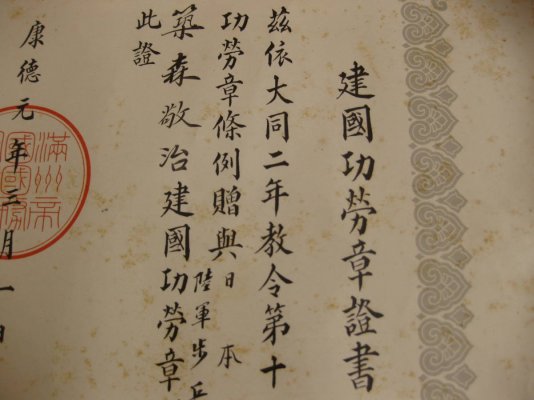 建國功勞章證書
茲依大同二年教令第十
功勞章條例贈與日本
陸軍步兵
築森敬治建國功勞章
此證
康德元年三月一日